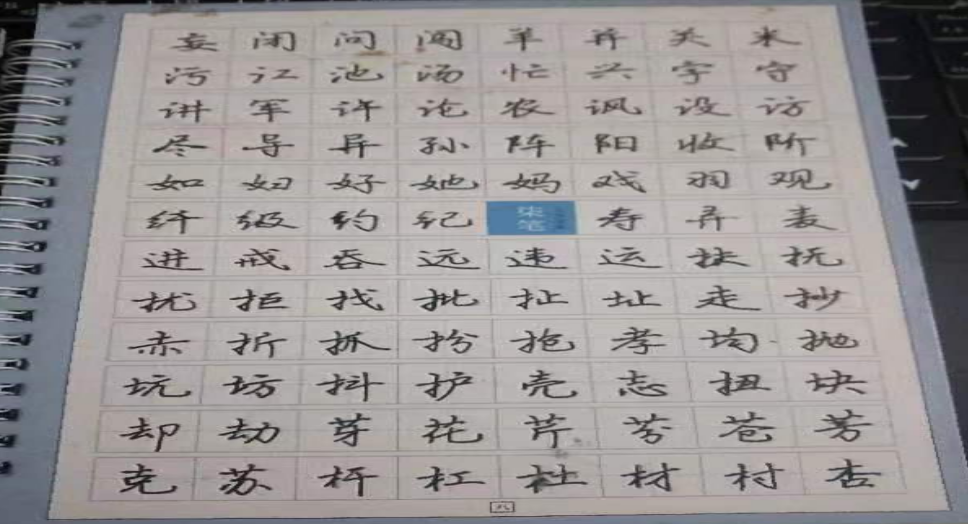 妄闭问闯羊并关米
污江池汤忙兴宇守
讲军许论农讽设访
尽导异孙阵阳收阶
如妇好她妈戏羽观
纤级约纪柒笔寿弄麦
进戒吞远违运扶抚
扰拒找批扯址走抄
赤折抓扮抢孝均抛
坑坊抖护壳志扭块
却劫芽花芹芬苍芳
克苏杆杠杜材村杏
八